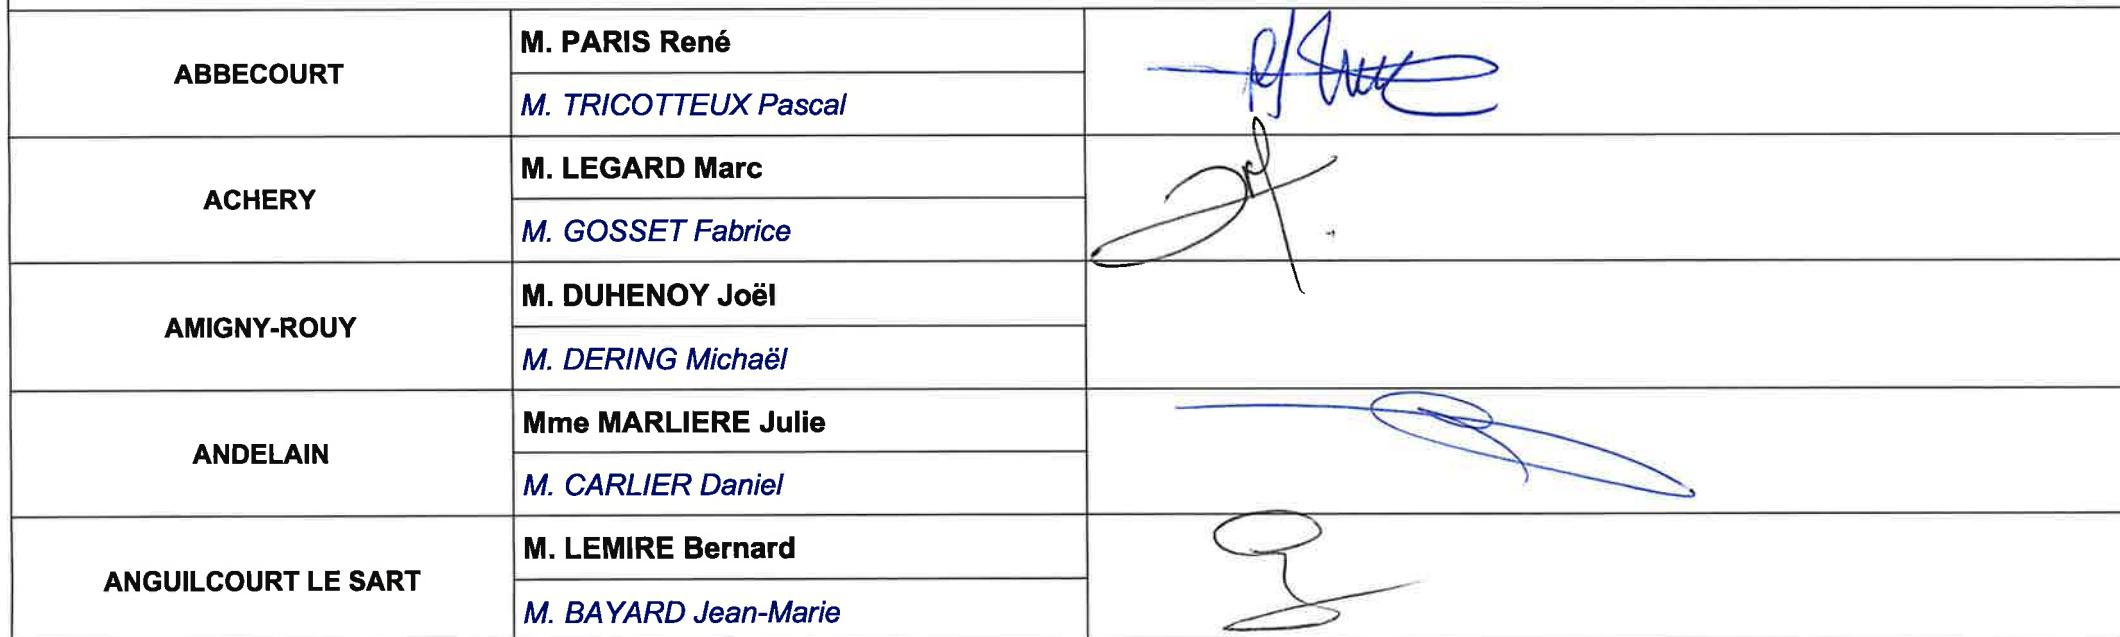 ABBECOURT
M. PARIS René
M. TRICOTTEUX Pascal
ACHERY
M. LEGARD Marc
M. GOSSET Fabrice
AMIGNY-ROUY
M. DUHENOY Joël
M. DERING Michaël
ANDELAIN
Mme MARLIERE Julie
M. CARLIER Daniel
ANGUILCOURT LE SART
M. LEMIRE Bernard
M. BAYARD Jean-Marie